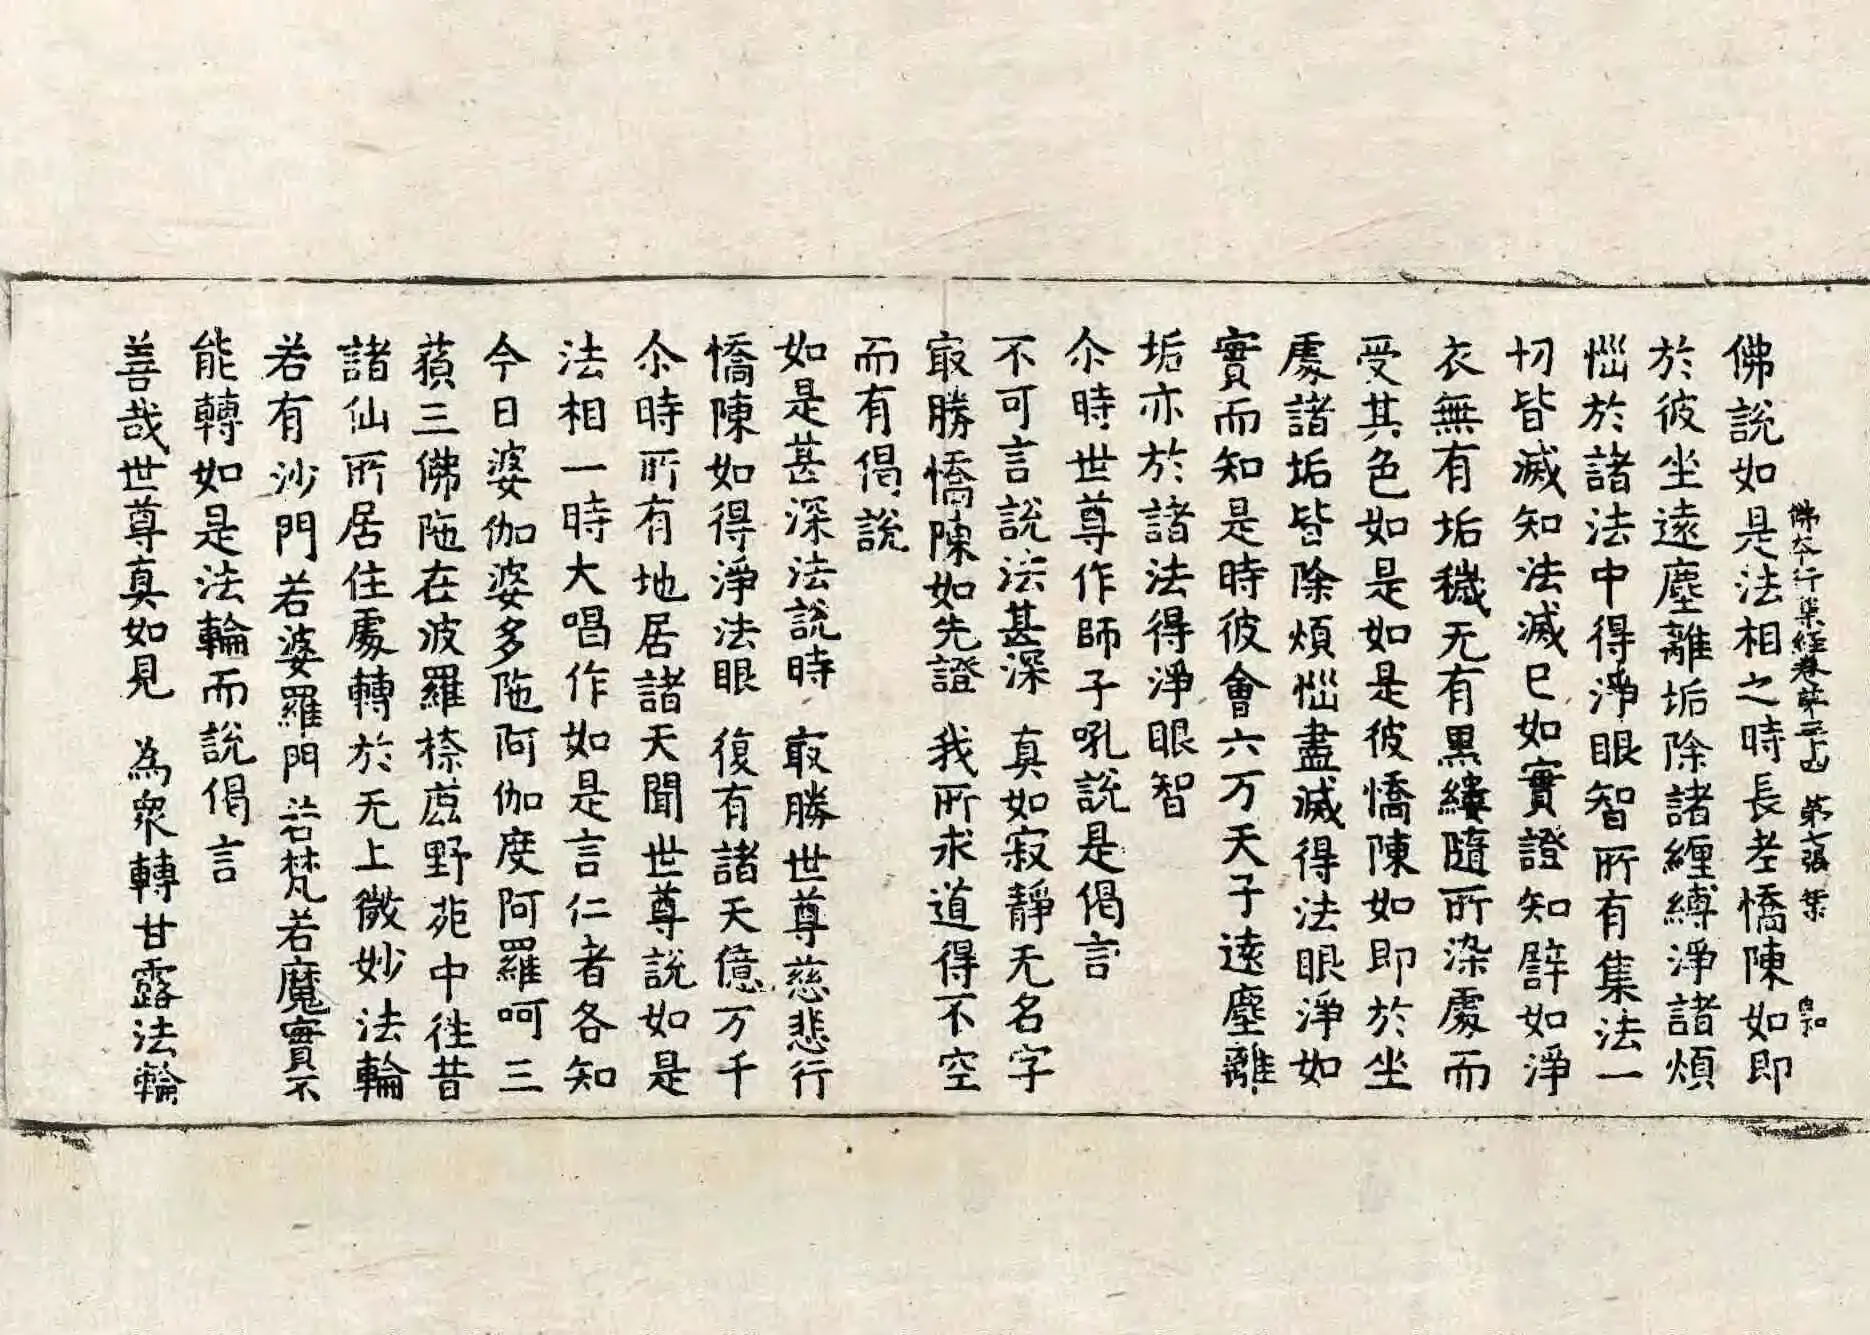 佛說如是法相之時長老憍陳如即
佛夲行集經卷苐三四 苐七張 集
於彼坐遠塵離垢除諸纒縛淨諸煩
惱於諸法中得淨眼智所有集法一
切皆滅知法滅已如實證知辟如淨
衣無有垢穢无有黑縷隨所染處而
受其色如是如是彼憍陳如即於坐
處諸垢皆除煩惱盡滅得法眼淨如
實而知是時彼會六万天子遠塵離
垢亦於諸法得淨眼智
尒時世尊作師子吼說是偈言
不可言說法甚深 真如寂靜无名字
㝡勝憍陳如先證 我所求道得不空
而有偈說
如是甚深法說時 㝡勝世尊慈悲行
憍陳如得淨法眼 復有諸天億万千
尒時所有地居諸天聞世尊說如是
法相一時大唱作如是言仁者各知
今日婆伽婆多陁阿伽度阿羅呵三
藐三佛陁在波羅㮈鹿野苑中徃昔
諸仙所居住處轉於无上微妙法輪
若有沙門若婆羅門若梵若魔實不
能轉如是法輪而說偈言
善哉世尊真如見 為衆轉甘露法輪